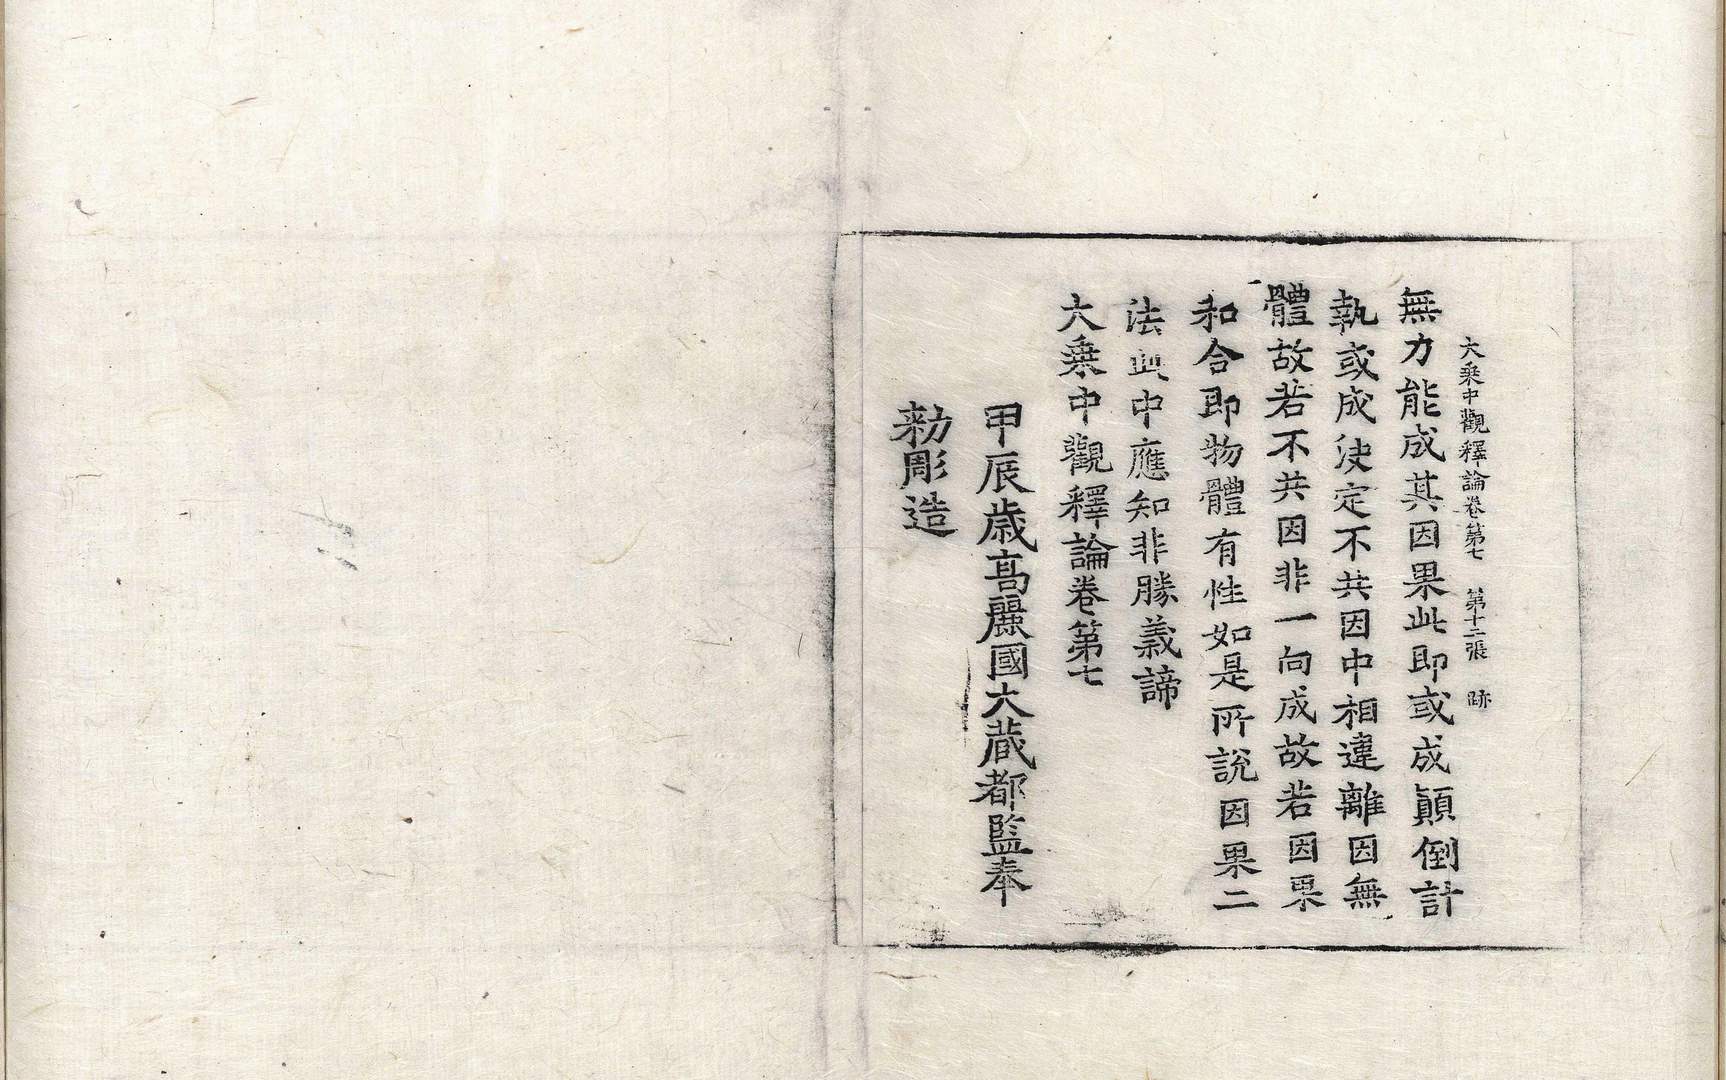 大乗中觀釋論卷第七 第十二張 跡
無力能成其因果此即或成顚倒計
執或成決定不共因中相違離因無
體故若不共因非一向成故若因果
和合即物體有性如是所說因果二
法此中應知非勝義諦
大乗中觀釋論卷第七
甲辰歳高麗國大蔵都監奉
勑彫造